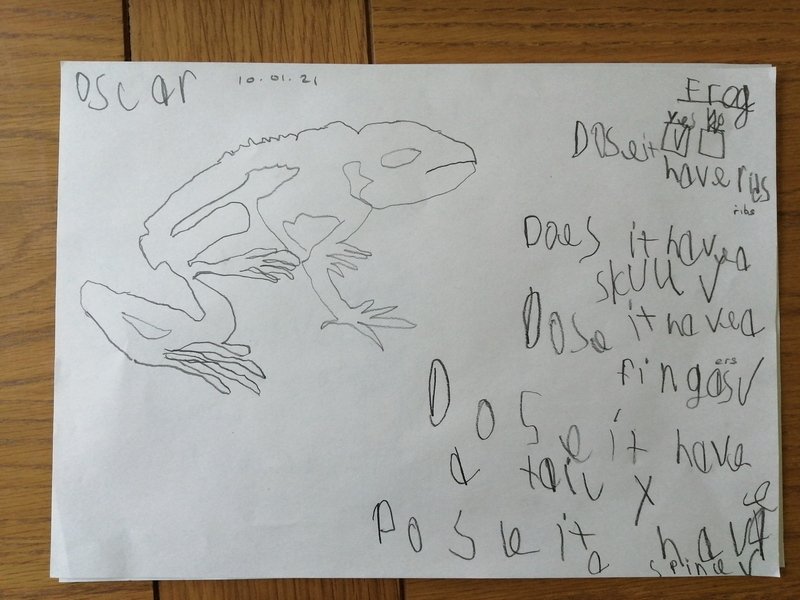 Oscar
10.01.21
Frog
Yes No
Dose it ✓
have ribs
ribs
Does it have a
skull ✓
Dose it have a
ers
fingas ✓
Dose it have
a tail x
Dose it have
a
spine ✓